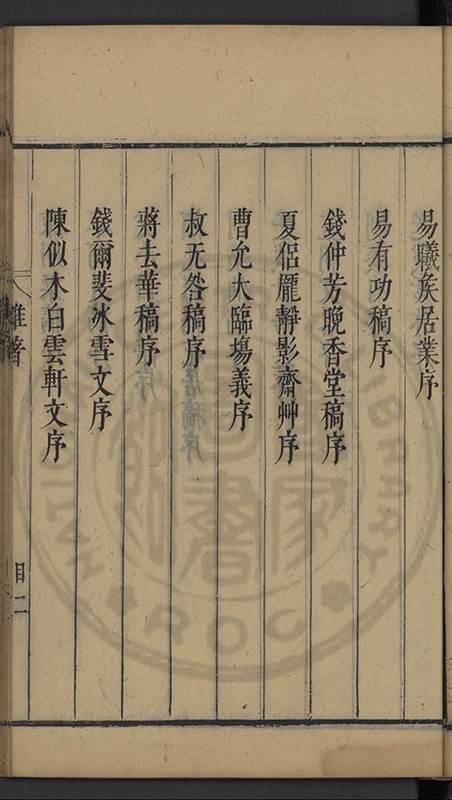 易曦矦居業序
易有功稿序
錢仲芳晚香堂稿序
夏侶龎靜影齋艸序
曹允大臨塲義序
叔无咎稿序
蔣去華稿序
錢爾斐冰雪文序
陳似木白雲軒文序
雜著
目二